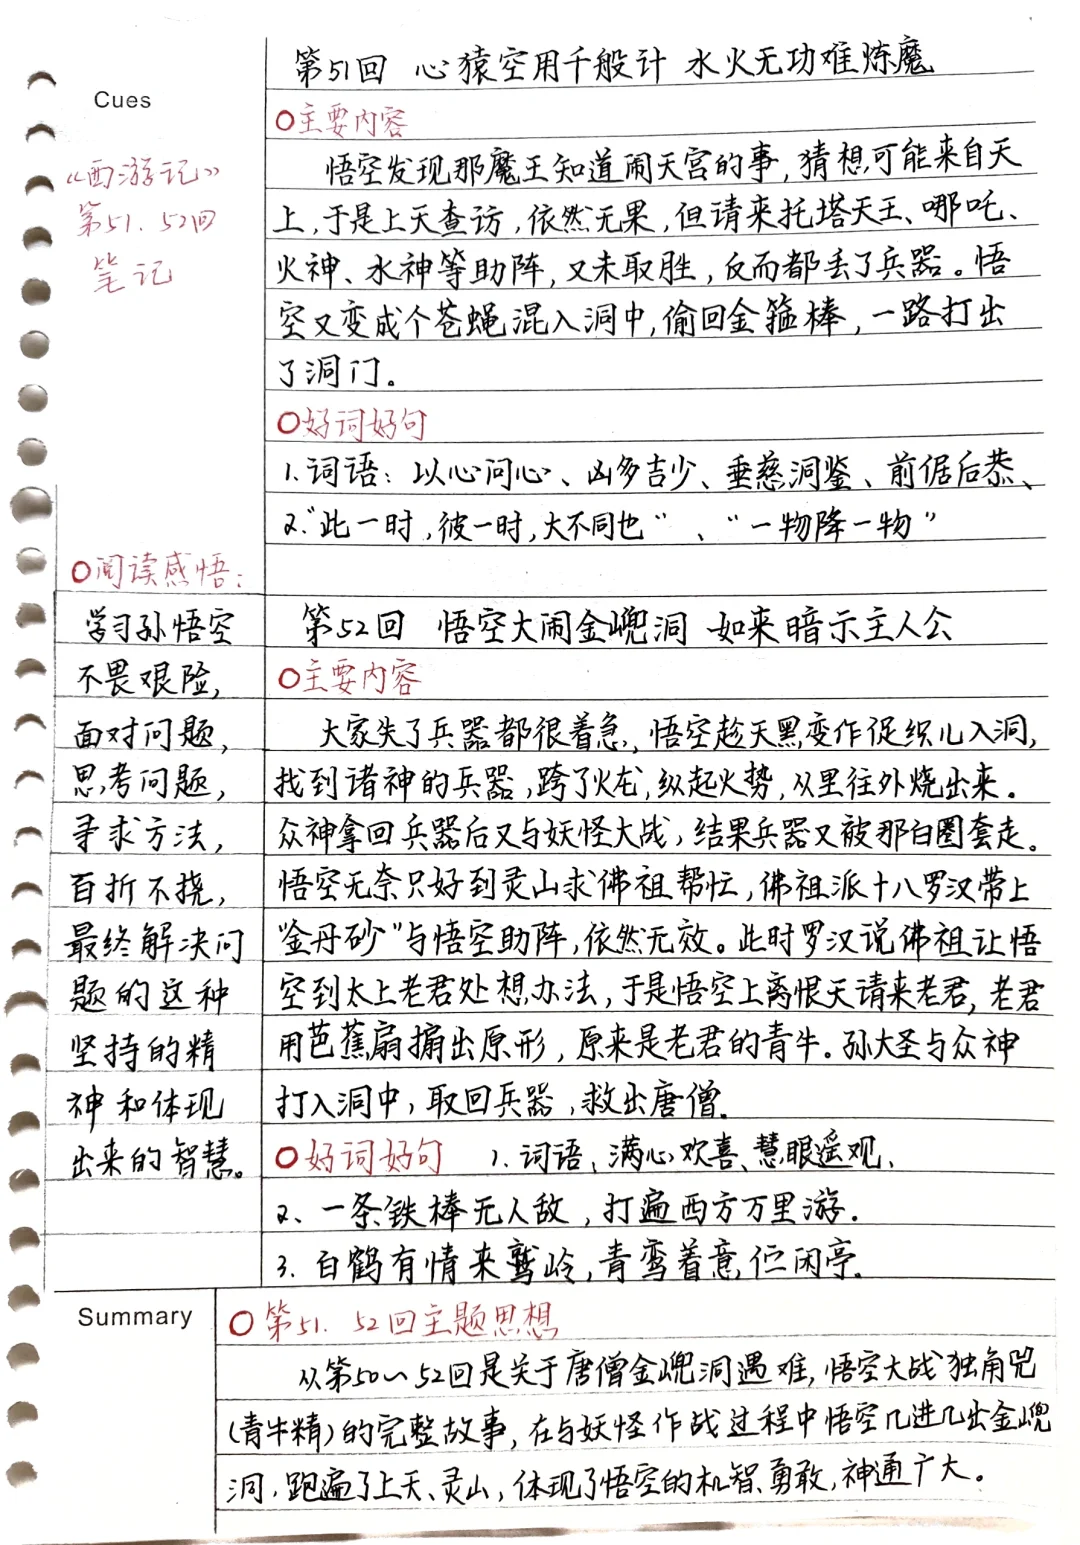 第51回 心猿空用千般计 水火无功难炼魔
Cues
○主要内容
《西游记》
第51、52回
笔记
悟空发现那魔王知道闹天宫的事，猜想可能来自天
上，于是上天查访，依然无果，但请来托塔天王、哪吒、
火神、水神等助阵，又未取胜，反而都丢了兵器。悟
空又变成个苍蝇混入洞中，偷回金箍棒，一路打出
了洞门。
○好词好句
1.词语：以心问心、凶多吉少、垂慈洞鉴、前倨后恭、
2.“此一时，彼一时，大不同也”、“一物降一物”
○阅读感悟：
学习孙悟空
不畏艰险，
面对问题，
思考问题，
寻求方法，
百折不挠，
最终解决问
题的这种
坚持的精
神和体现
出来的智慧。
第52回 悟空大闹金㠙洞 如来暗示主人公
○主要内容
大家失了兵器都很着急，悟空趁天黑变作促织儿入洞，
找到诸神的兵器，跨了火龙，纵起火势，从里往外烧出来。
众神拿回兵器后又与妖怪大战，结果兵器又被那白圈套走。
悟空无奈只好到灵山求佛祖帮忙，佛祖派十八罗汉带上
“金丹砂”与悟空助阵，依然无效。此时罗汉说佛祖让悟
空到太上老君处想办法，于是悟空上离恨天请来老君，老君
用芭蕉扇搧出原形，原来是老君的青牛。孙大圣与众神
打入洞中，取回兵器，救出唐僧.
○好词好句 1.词语、满心欢喜、慧眼遥观、
2、一条铁棒无人敌，打遍西方万里游.
3.白鹤有情来鹫岭，青鸾着意伫闲亭.
Summary
○第51、52回主题思想
从第50~52回是关于唐僧金㠙洞遇难，悟空大战独角兕
(青牛精)的完整故事，在与妖怪作战过程中悟空几进几出金㠙
洞，跑遍了上天、灵山，体现了悟空的机智、勇敢，神通广大。